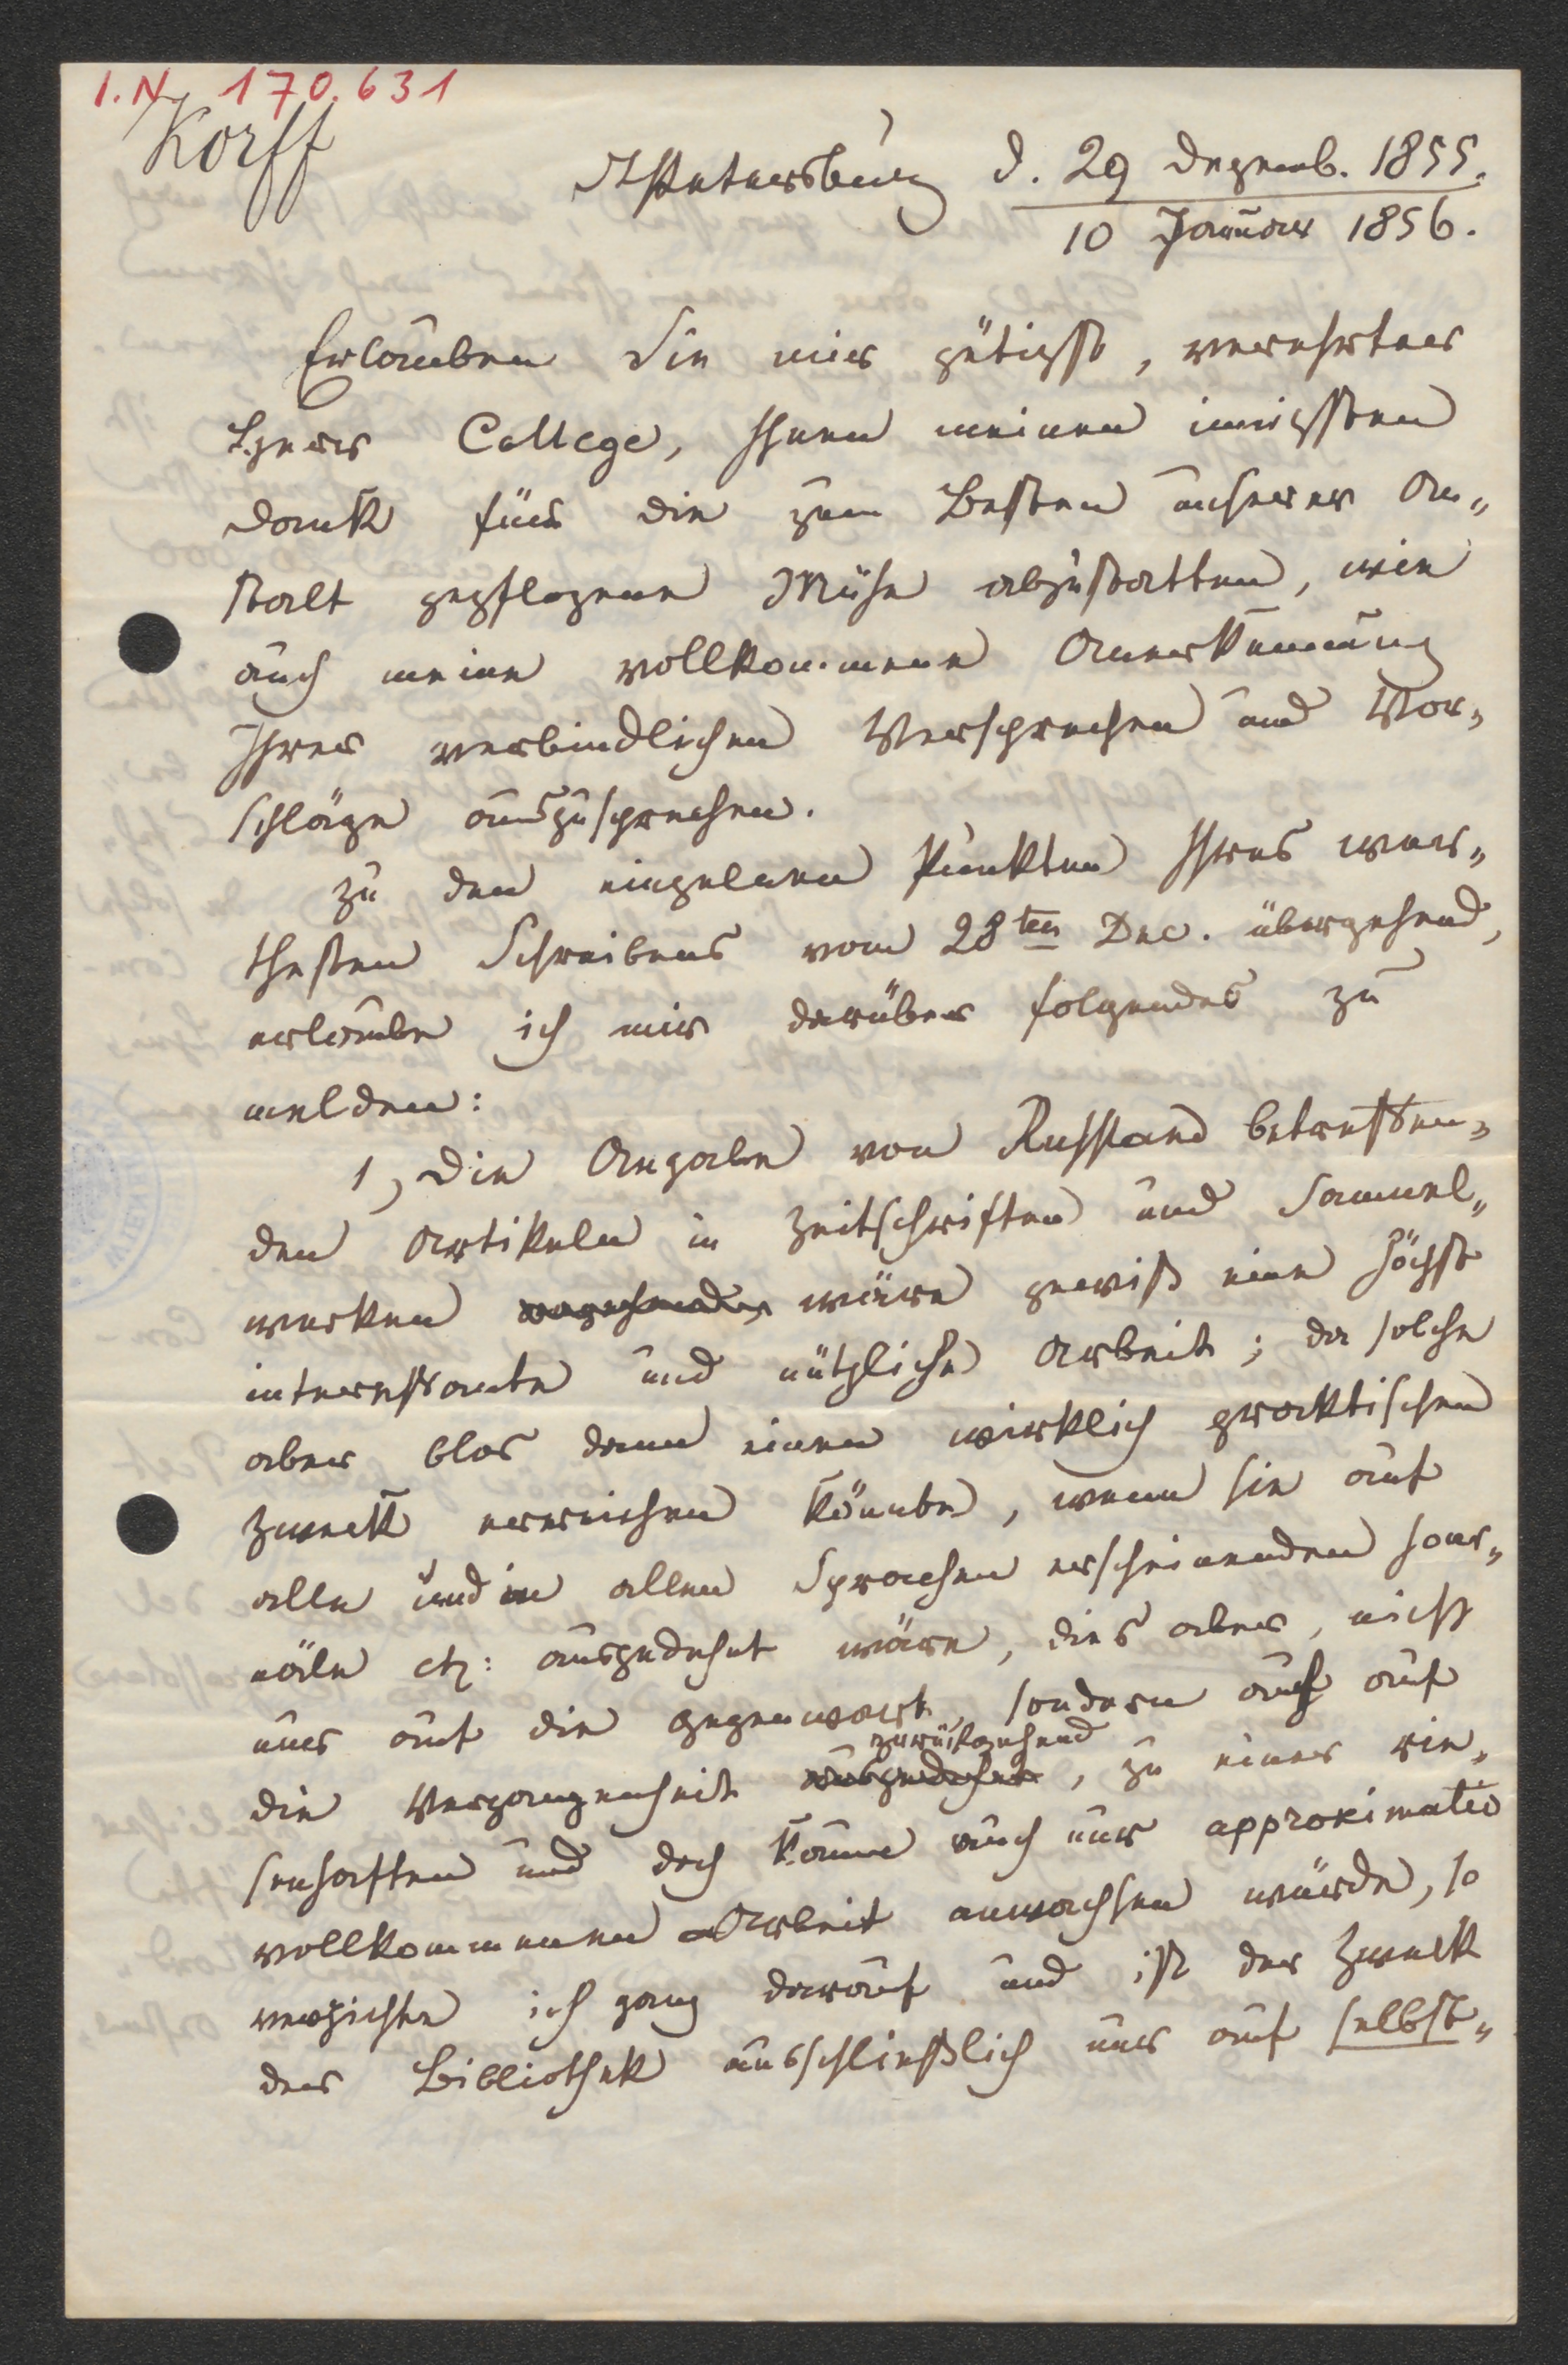 I.N. 170.631
Korff
St Petersburg d. 29 Dezemb. 1855.
10 Januar 1856.
Erlauben Sie mir gütigst, verehrter
Herr College, Ihnen meinen innigsten
Dank für die zum Besten unserer An„
stalt gepflogene Mühe abzustatten, wie
auch meine vollkommene Anerkennung
Ihrer verbindlichen Versprechen und Vor„
schläge auszusprechen.
Zu den einzelnen Punkten Ihres wer„
thesten Schreibens vom 28ten Dec. übergehend,
erlaube ich mir darüber folgendes zu
melden:
1, Die Angabe von Russland betreffen„
den Artikeln in Zeitschriften und Sammel„
werken wäre gewiß eine höchst
interessante und nützliche Arbeit; da solche
aber blos dann einen wirklich praktischen
Zweck erreichen könnte, wenn sie auf
alle und in allen Sprachen erscheinenden Jour„
näle etz: ausgedehnt wäre, dies aber, nicht
nur auf die Gegenwart, sondern auch auf
zurückgehend
die Vergangenheit ausgedehnt, zu einer rie„
senhaften und doch kaum auch nur approximativ
vollkommenen Arbeit anwachsen würde, so
verzichte ich ganz darauf und ist der Zweck
der Bibliothek ausschließlich nur auf selbst„